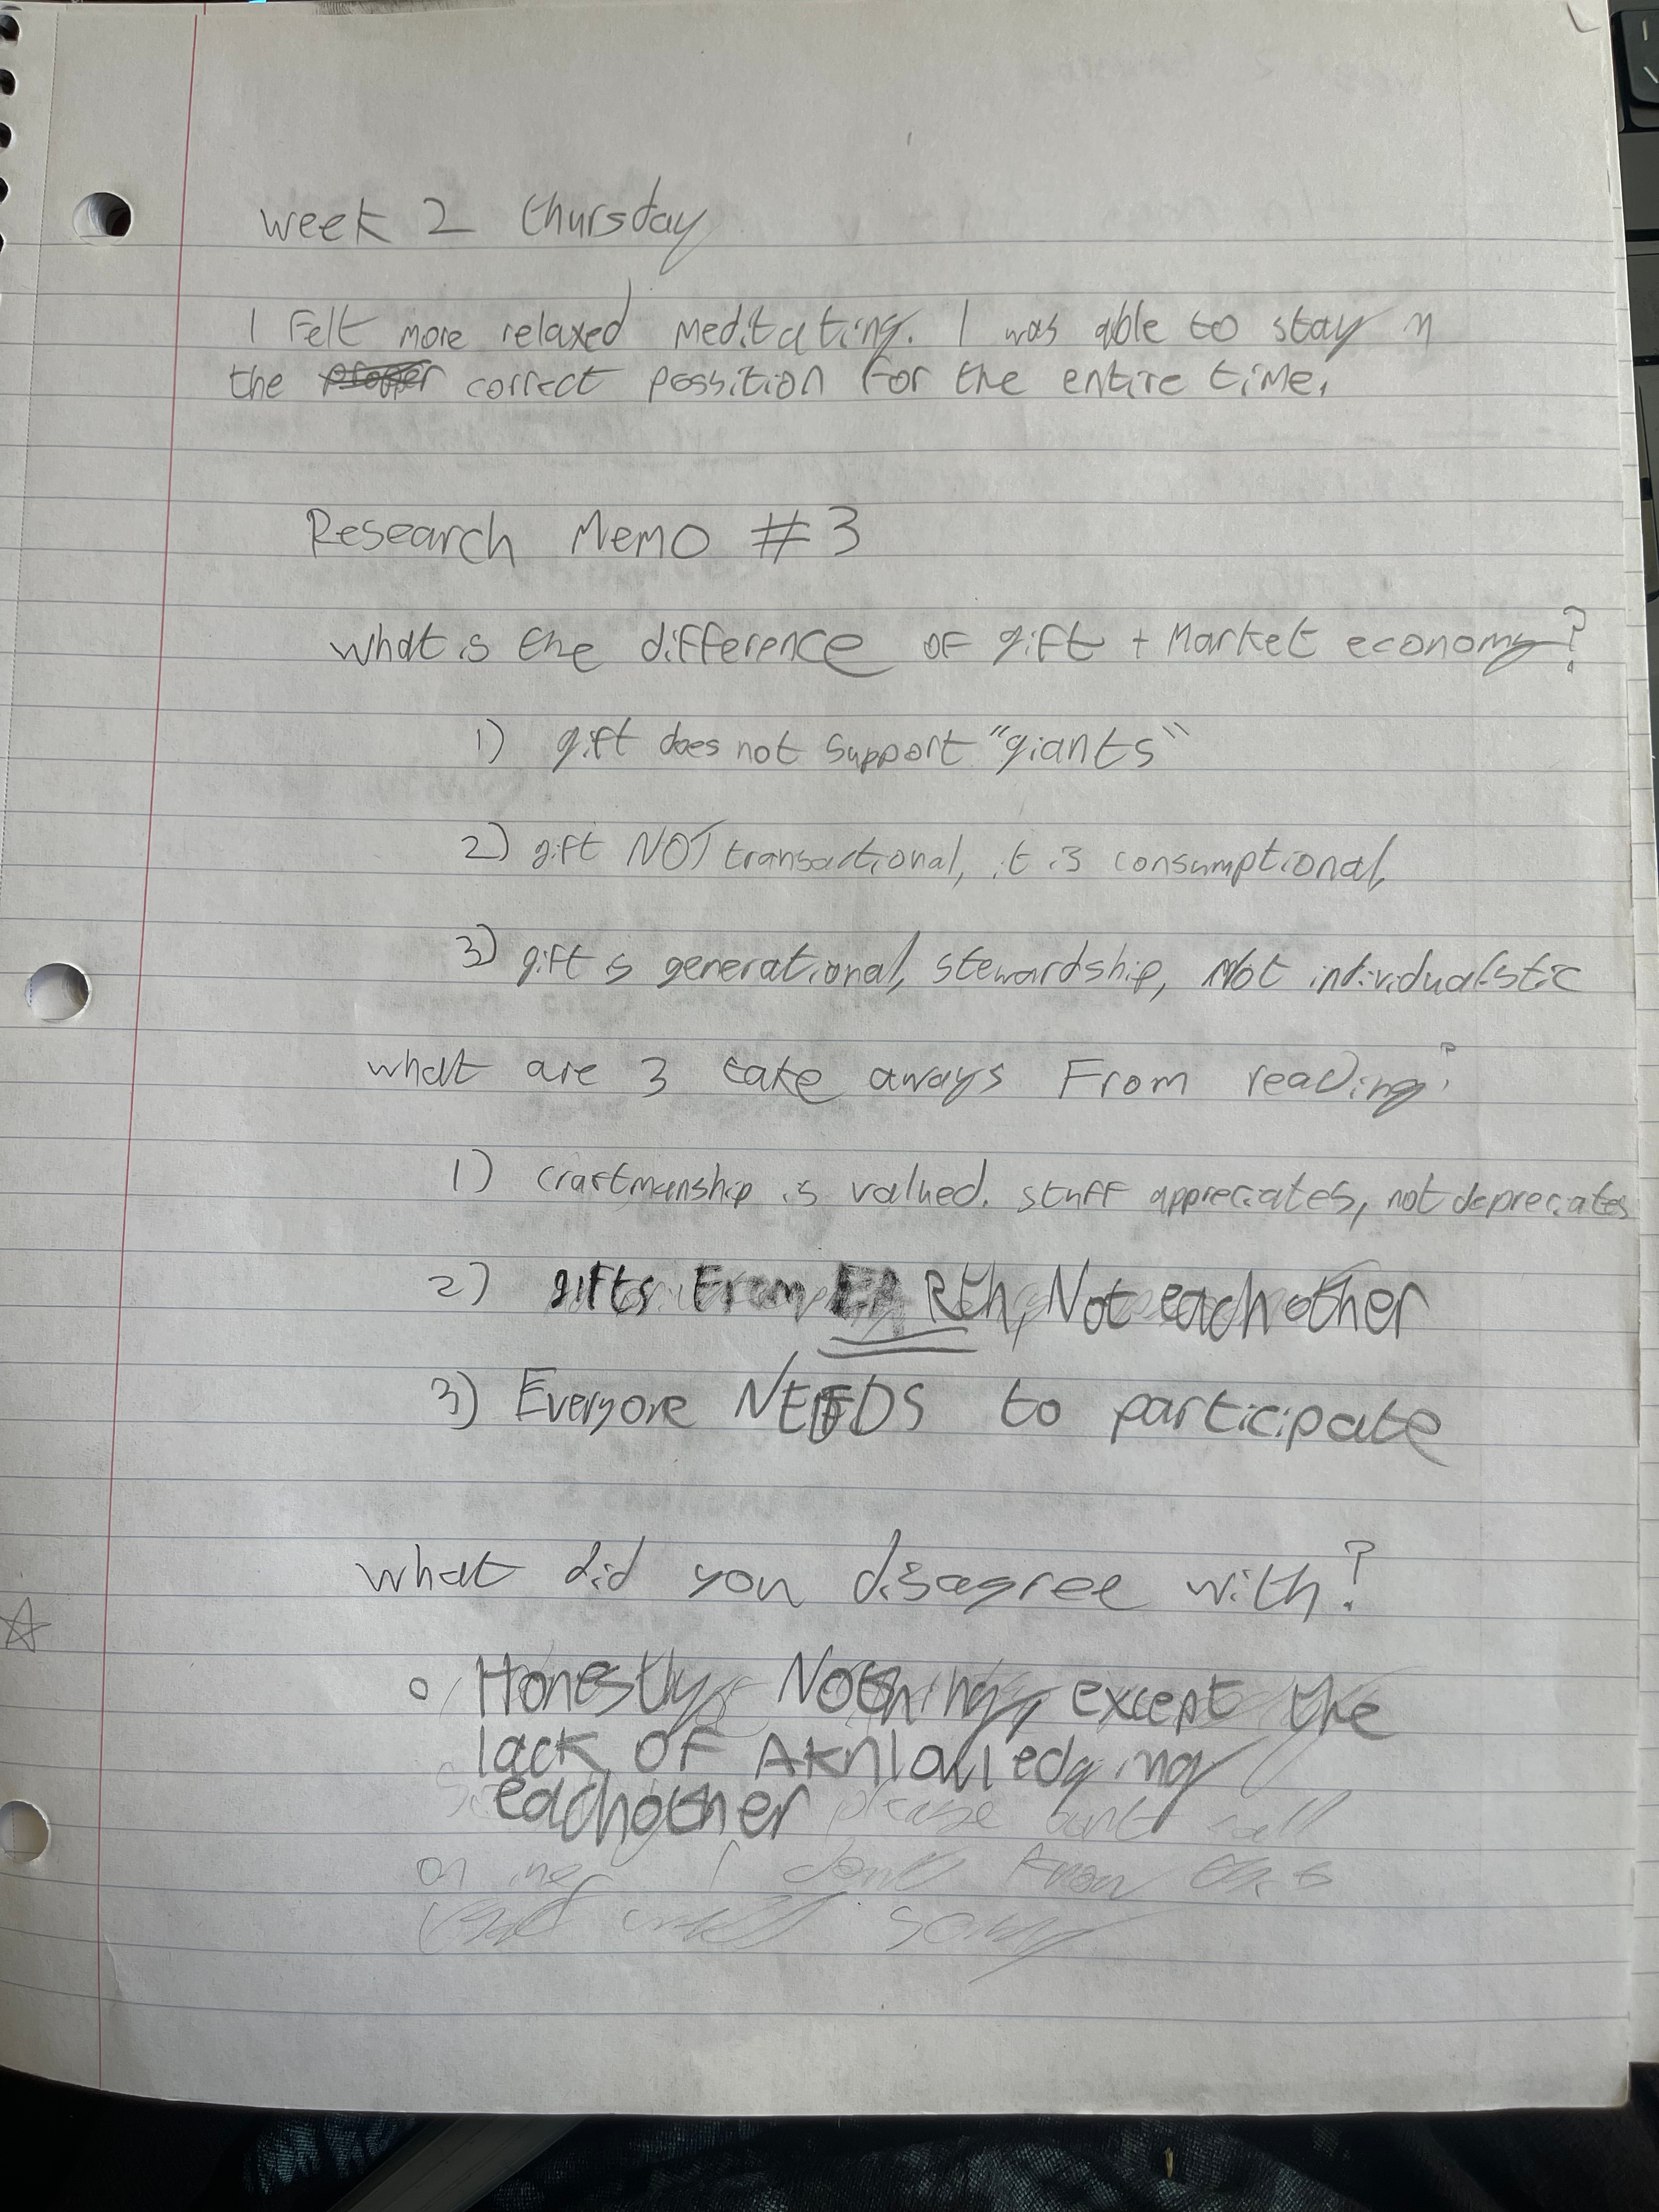 week 2 thursday
I Felt more relaxed meditating. I was able to stay in
the proper correct possition for the entire time.
Research Memo #3
what is the difference of gift + Market economy?
1) gift does not support "giants"
2) gift NOT transactional, it is consumptional,
3) gift is generational, stewardship, Not individualistic
what are 3 take aways From reading?
1) craftmanship is valued. stuff appreciates, not depreciates
2) gifts From EARth, Not eachother
3) Everyone NEEDS to participate
what did you disagree with?
Honestly, Nothing, except the
lack OF AKnlowledging
eachother please don't call
on me, I don't know this
sorry